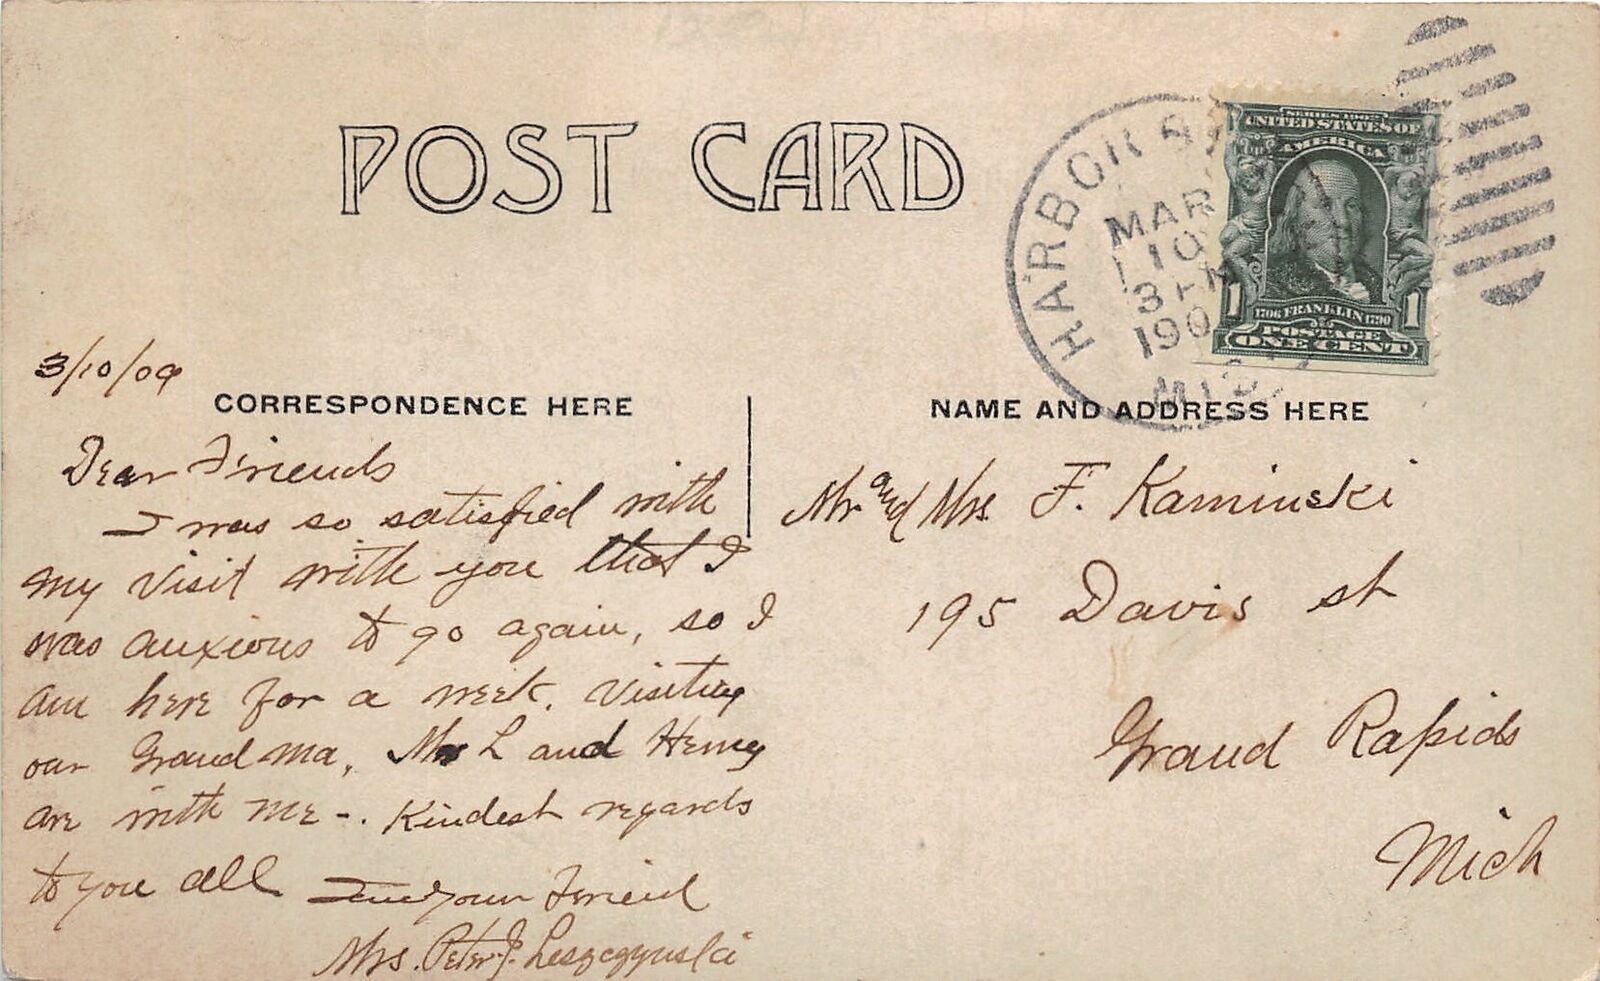 POST CARD
HARBOR
MAR
10
3 PM
190
MICH
SERIES 1902
UNITED STATES OF
AMERICA
1 1
1706 FRANKLIN 1790
POSTAGE
ONE CENT
3/10/09
CORRESPONDENCE HERE
Dear Friends
I was so satisfied with
my visit with you that I
was auxious to go again, so I
am here for a week. Visiting
our Grand ma, Mr L and Henry
are with me -. Kindest regards
to you all I am your Friend
Mrs. Peter J. Leszczynski
NAME AND ADDRESS HERE
Mr and Mrs F. Kaminski
195 Davis st
Grand Rapids
Mich